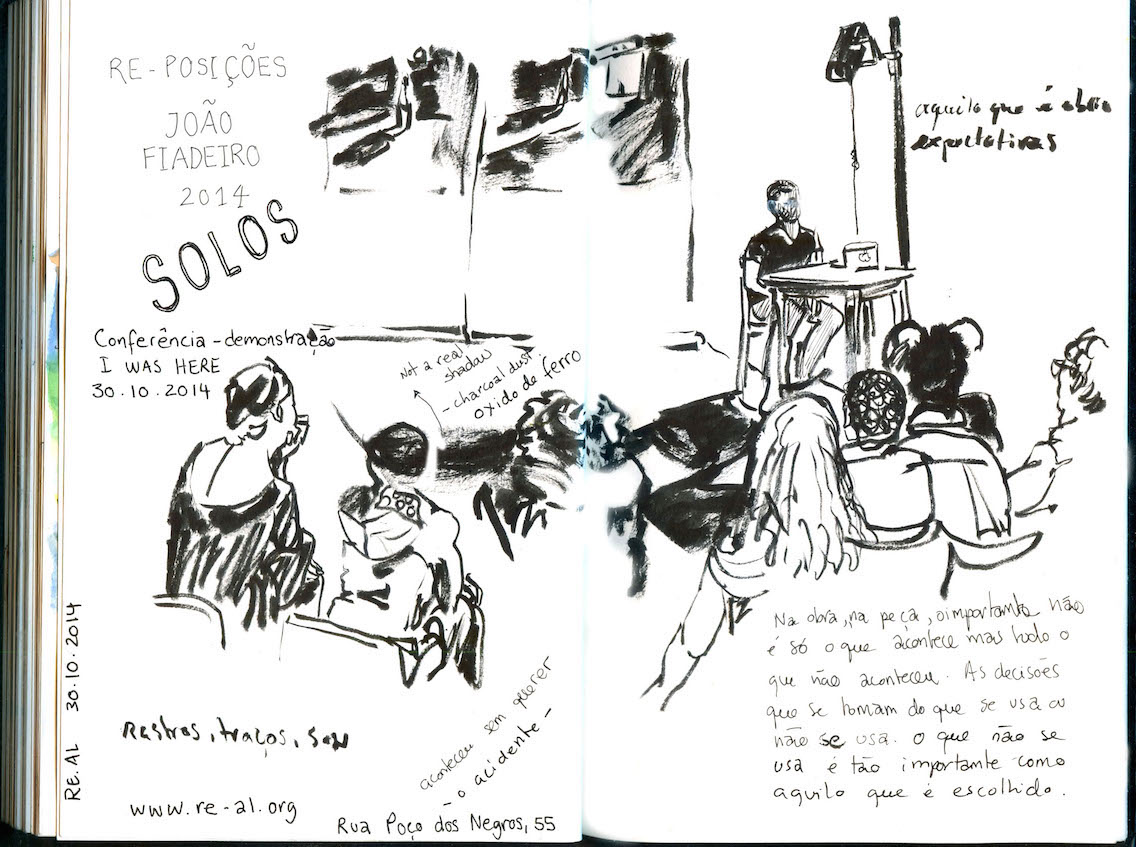 RE-POSIÇÕES
JOÃO
FIADEIRO
2014
SOLOS
Conferência - demonstração
I WAS HERE
30.10.2014
Not a real
shadow
- charcoal dust
oxido de ferro
RE.AL 30.10.2014
Rastros, traços,
www.re-al.org
aconteceu sem querer
- o acidente -
Rua Poço dos Negros, 55
aquilo que é
expectativas
Na obra, na peça, o importante não
é só o que acontece mas tudo o
que não aconteceu. As decisões
que se tomam do que se usa ou
não se usa. O que não se
usa é tão importante como
aquilo que é escolhido.